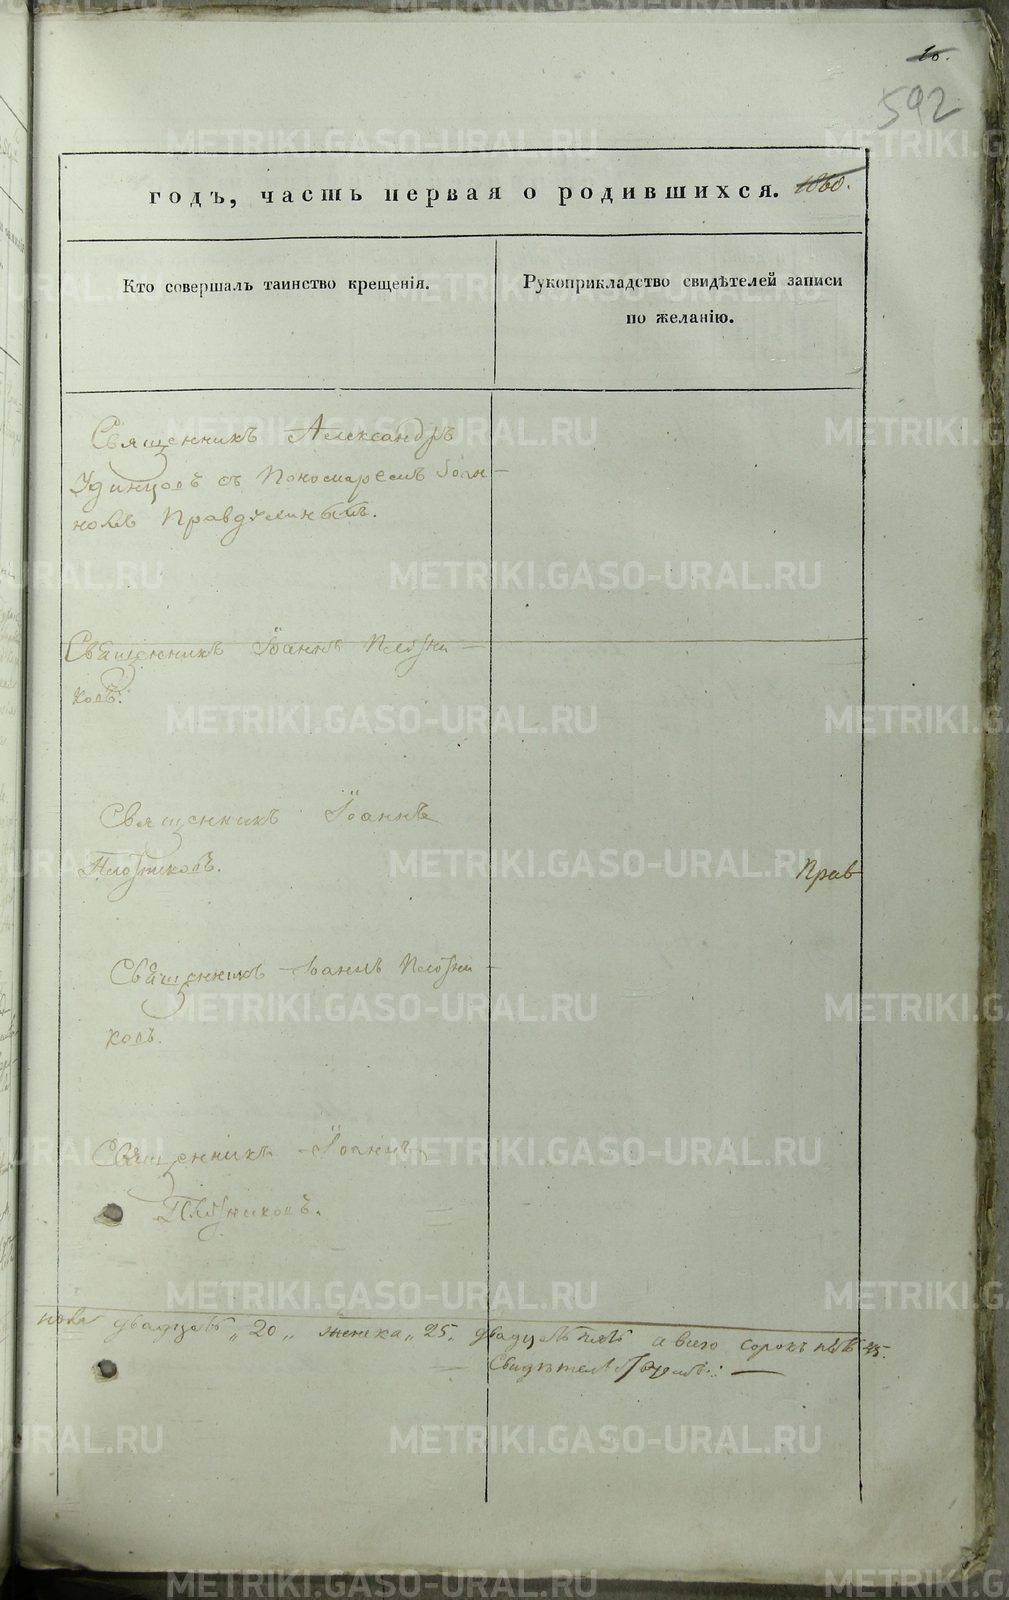 16.
592
годъ, часть первая о родившихся. 1860.
Кто совершалъ таинство крещенія.
Рукоприкладство свидѣтелей записи
по желанію.
Священникъ Александръ
Удинцовъ съ Пономаремъ Іоан-
номъ Правдухинымъ.
Священникъ Іоаннъ Плотни-
ковъ.
Священникъ Іоаннъ
Плотниковъ.
Прав
Священникъ Іоаннъ Плотни-
ковъ.
Священникъ Іоаннъ
Плотниковъ.
пола двадцать „20„ женска „25„ двадцать пять а всего сорокъ пять 45.
METRIKI.GASO-URAL.RU